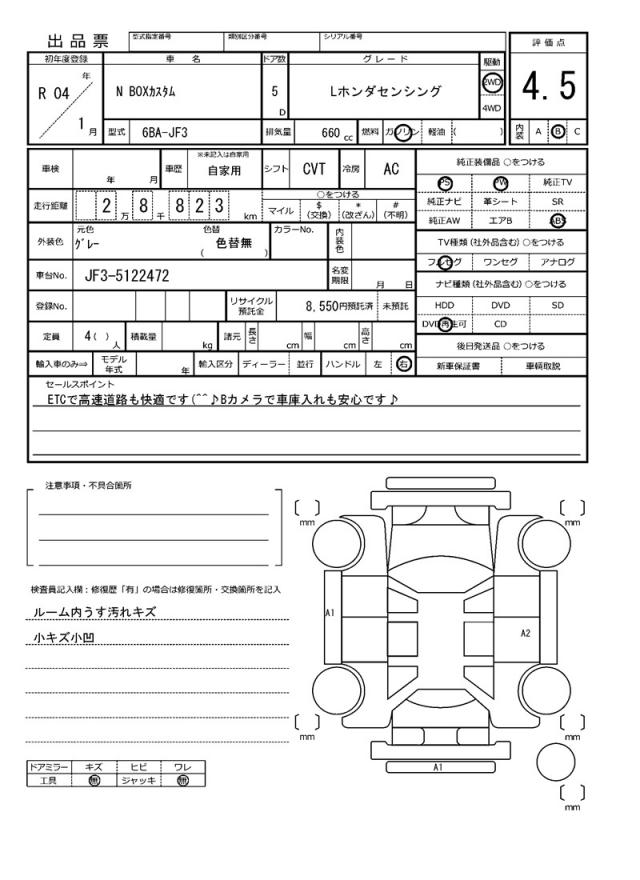 出品票 型式指定番号 類別区分番号 シリアル番号 評価点
初年度登録 車名 ドア数 グレード 駆動
R 04 年 1 月 N BOXｶｽﾀﾑ 5 D Lホンダセンシング 2WD 4WD 4.5
型式 6BA-JF3 排気量 660 cc 燃料 ガソリン 軽油 ( ) 内装 A B C
車検 年 月 車歴 ※未記入は自家用 自家用 シフト CVT 冷房 AC 純正装備品 ○をつける
PS PW 純正TV
走行距離 2 万 8 千 8 2 3 km ○をつける 純正ナビ 革シート SR
マイル $ (交換) * (改ざん) # (不明) 純正AW エアB ABS
外装色 元色 ｸﾞﾚｰ 色替 ( 色替無 ) カラーNo. 内装色 TV種類 (社外品含む) ○をつける
フルセグ ワンセグ アナログ
車台No. JF3-5122472 名変期限 月 日 ナビ種類 (社外品含む) ○をつける
登録No. リサイクル預託金 8,550円預託済 未預託 HDD DVD SD
DVD再生可 CD
定員 4 ( ) 人 積載量 kg 諸元 長さ cm 幅 cm 高さ cm 後日発送品 ○をつける
輸入車のみ⇒ モデル年式 年 輸入区分 ディーラー 並行 ハンドル 左 右 新車保証書 車輌取説
セールスポイント
ETCで高速道路も快適です(^^♪Bカメラで車庫入れも安心です♪
注意事項・不具合箇所
mm mm
検査員記入欄：修復歴「有」の場合は修復箇所・交換箇所を記入
ルーム内うす汚れキズ A1
小キズ小凹 A2
mm mm
ドアミラー キズ ヒビ ワレ A1
工具 無 ジャッキ 無
mm